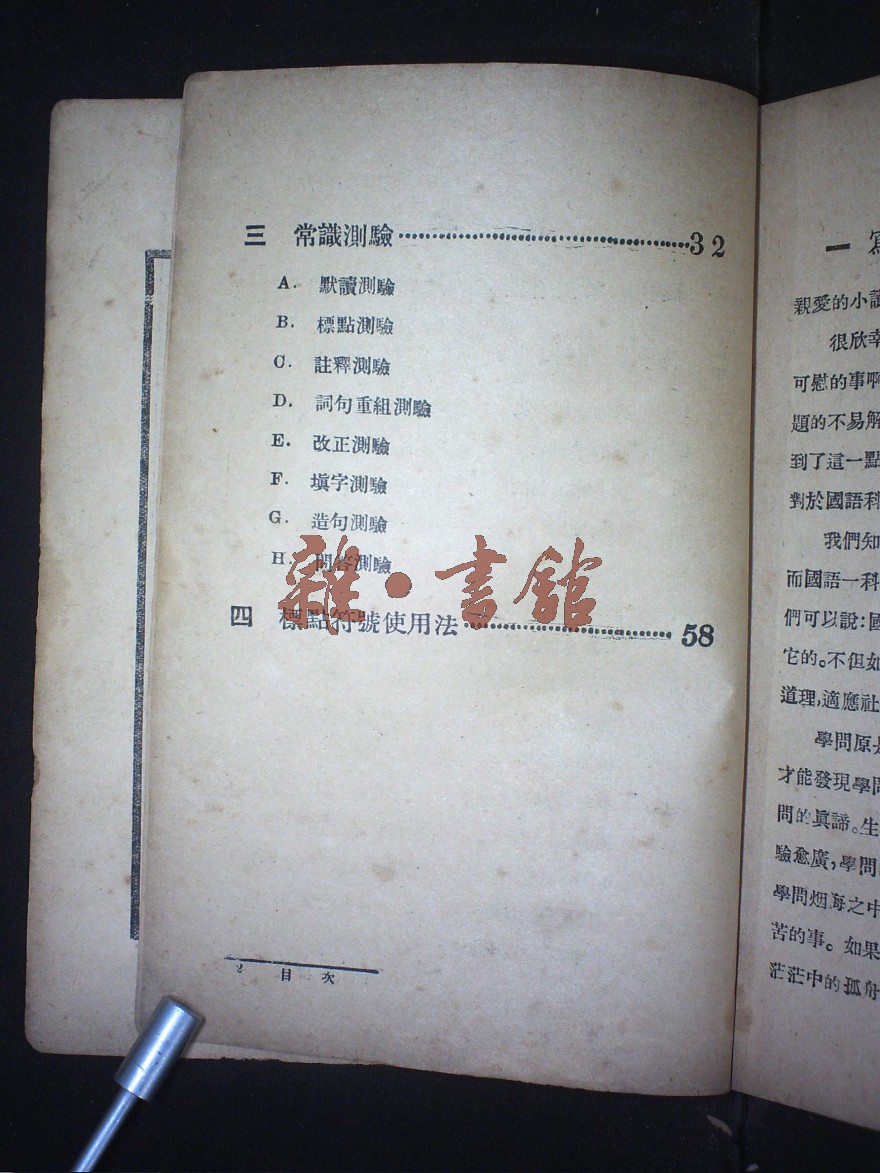 三 常識測驗……32
A. 默讀測驗
B. 標點測驗
C. 註釋測驗
D. 詞句重組測驗
E. 改正測驗
F. 填字測驗
G. 造句測驗
H. 問答測驗
四 標點符號使用法……58
2 目次
雜·書舘
一 寫
親愛的小讀
很欣幸
可慰的事啊
題的不易解
到了這一點
對於國語科
我們知
而國語一科
們可以說:國
它的。不但如
道理,適應社
學問原是
才能發現學問
問的眞諦。生
驗愈廣,學問
學問烟海之中
苦的事。如果
茫茫中的孤舟